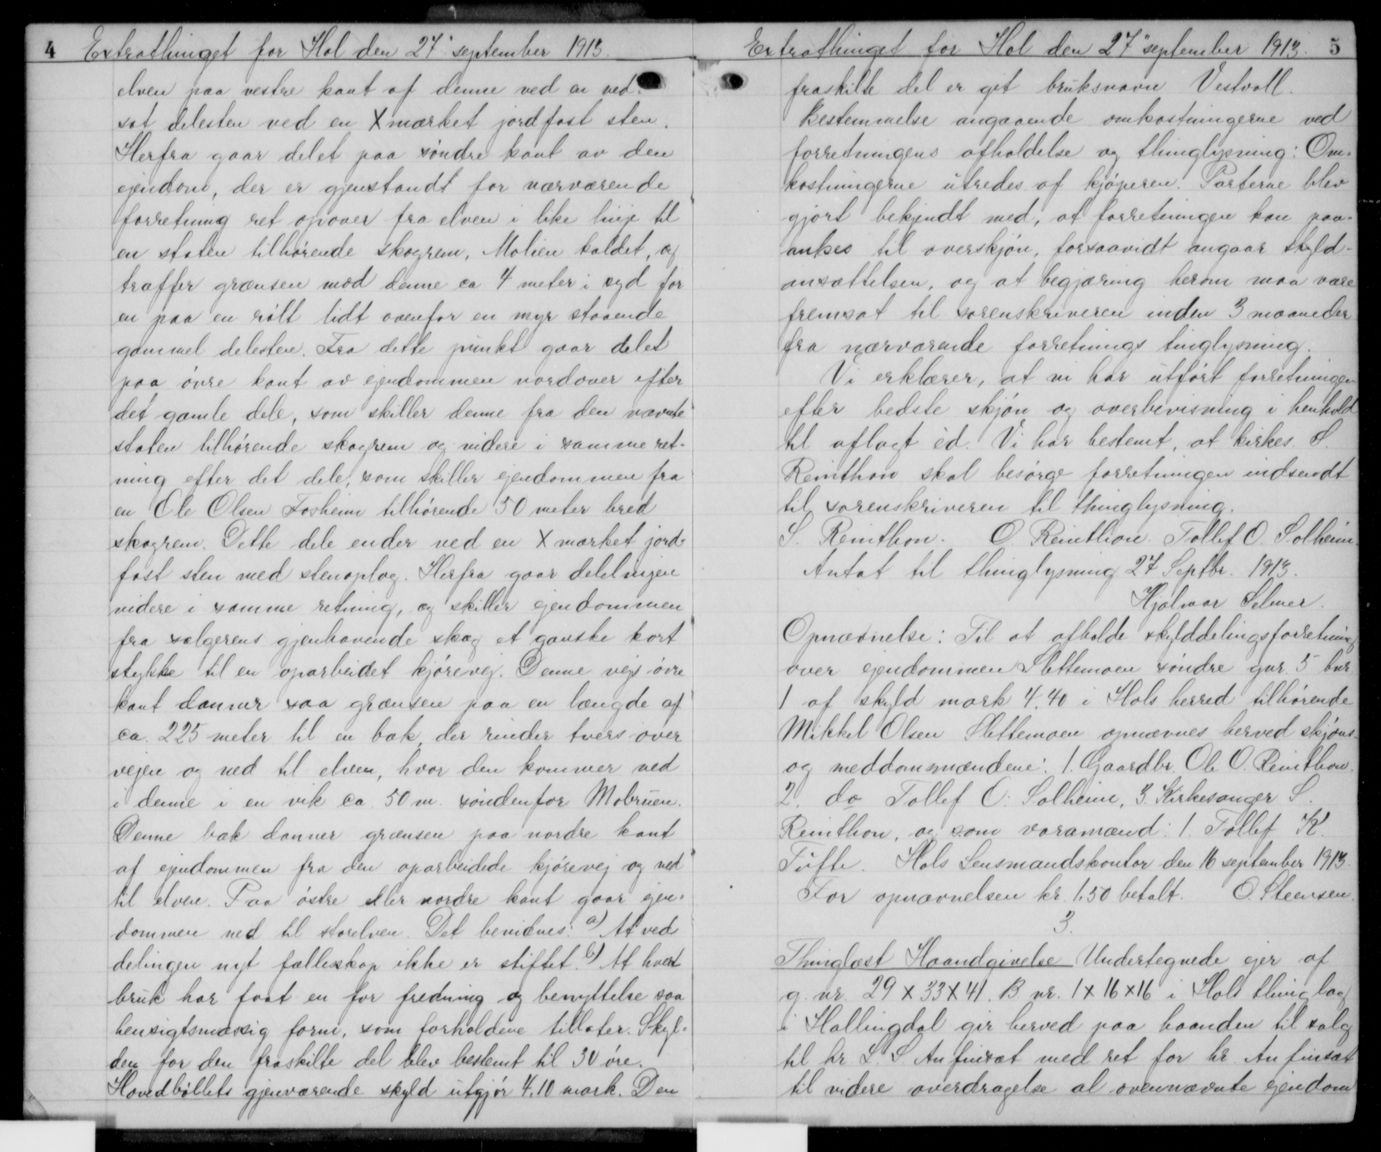 4 Extrathinget for Hol den 27' september 1913.
elven paa vestre kant af denne ved en ned-
sat delesten ved en X mærket jordfast sten.
Herfra gaar delet paa søndre kant av den
ejendom, der er gjenstandt for nærværende
forretning ret opover fra elven i like linje til
en staten tilhørende skogrem, Moliен kaldet, og
træffer grænsen mod denne ca 4 meter i syd for
en paa en røllt lidt ovenfor en myr staaende
gammel delesten. Fra dette punkt gaar delet
paa øvre kant av ejendommen nordover efter
det gamle dele, som skiller denne fra den nævnte
staten tilhørende skogrem og videre i samme ret-
ning efter det dele, som skiller ejendommen fra
en Ole Olsen Fosheim tilhørende 50 meter bred
skogrem. Dette dele ender ved en X mærket jord-
fast sten med stenoplag. Herfra gaar delelinjen
videre i samme retning, og skiller ejendommen
fra sælgerens gjenhavende skog et ganske kort
stykke til en oparbeidet kjørevej. Denne vejs øvre
kant danner saa grænsen paa en længde af
ca. 225 meter til en bæk, der rinder tvers over
vejen og ned til elven, hvor den kommer ned
i denne i en vik ca. 50 m. søndenfor Mobruen.
Denne bæk danner grænsen paa nordre kant
af ejendommen fra den oparbeidede kjørevej og ned
til elven. Paa østre eller nordre kant gaar ejen-
dommen ned til storelven. Det bevidnes: a) At ved
delingen nyt fælleskap ikke er stiftet. b) At hvert
bruk har faat en for fredning og benyttelse saa
hensigtsmæssig form, som forholdene tillater. Skyl-
den for den fraskilte del blev bestemt til 30 øre.
Hovedbøllets gjenværende skyld utgjør 4.10 mark. Den
Extrathinget for Hol den 27" september 1913. 5
fraskilte del er git bruksnavn Vestvoll.
Bestemmelse angaaende omkostningerne ved
forretningens afholdelse og thinglysning: Om-
kostningerne utredes af kjøperen. Parterne blev
gjort bekjendt med, at forretningen kan paa-
ankes til overskjøn, forsaavidt angaar skyld-
ansættelsen, og at begjæring herom maa være
fremsat til sorenskriveren inden 3 maaneder
fra nærværende forretnings tinglysning.
Vi erklærer, at vi har utført forretningen
efter bedste skjøn og overbevisning i henhold
til aflagt ed. Vi har bestemt, at kirkes. S.
Reinthon skal besørge forretningen indsendt
til sorenskriveren til thinglysning.
S. Reinthon. O. Reinthon. Tollef O. Solheim.
Antat til thinglysning 27 Septbr. 1913.
Hjalmar Selmer.
Opnævnelse: Til at afholde skylddelingsforretning
over ejendommen Slettemoen søndre gnr. 5 bnr
1 af skyld mark 4,40 i Hols herred tilhørende
Mikkel Olsen Slettemoen opnævnes herved skjøns-
og meddomsmændene: 1. Gaardbr. Ole O. Reinthon.
2. do Tollef O. Solheim, 3. Kirkesanger S.
Reinthon, og som varamænd: 1. Tollef K.
Tufte. Hols Lensmandskontor den 16 september 1913.
For opnævnelsen kr. 1,50 betalt. O. Steensen.
3.
Thinglæst Haandgivelse Undertegnede ejer af
g. nr. 29 X 33 X 41. B nr. 1 X 16 X 16 i Hols thinglag
i Hallingdal gir herved paa haanden til salg
til hr. L S Anfinsat med ret for hr. Anfinsat
til videre overdragelse al ovennævnte ejendom